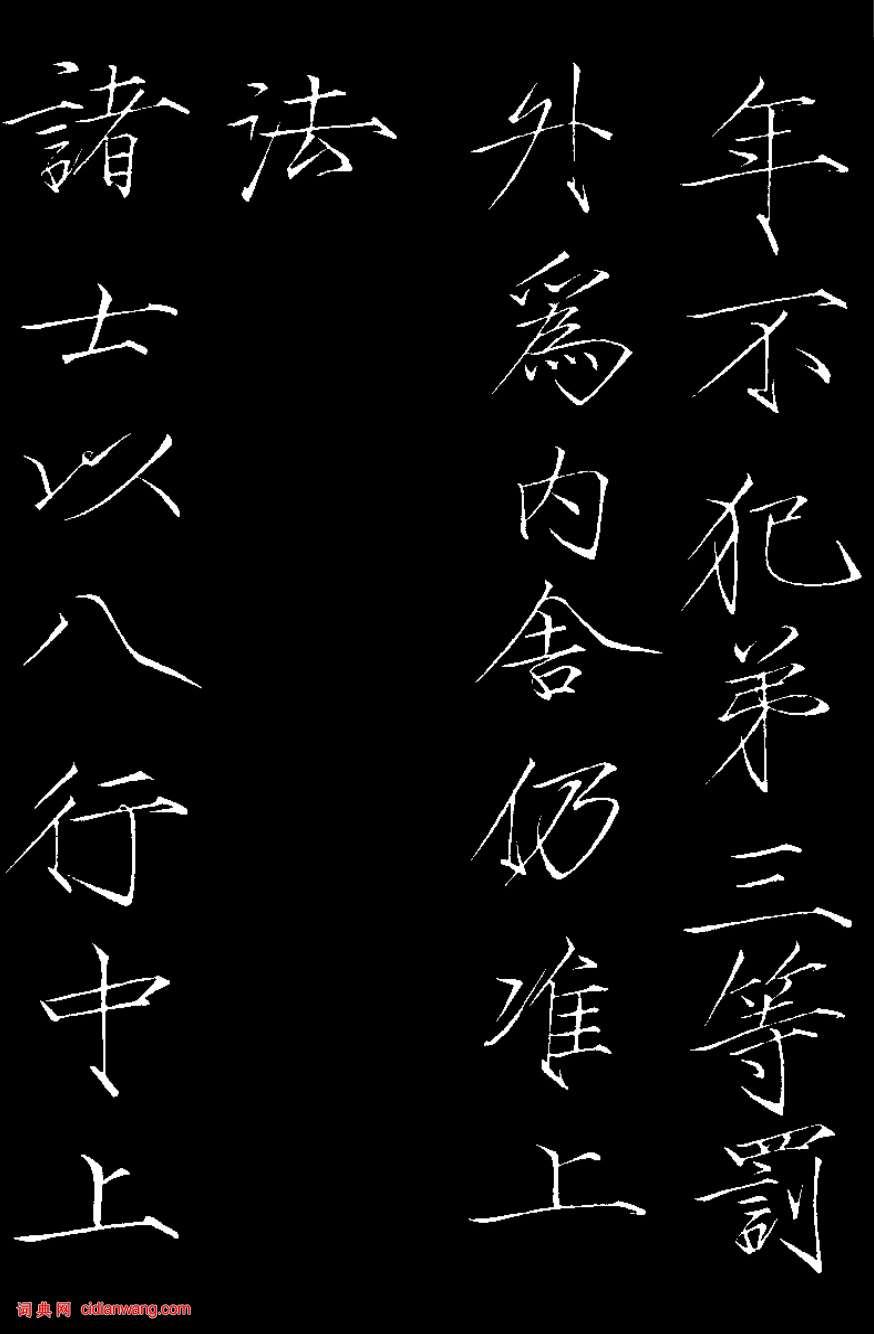 年不犯弟三等罰
外爲内舍仍准上
法
諸士以八行中上
词典网 cidianwang.com